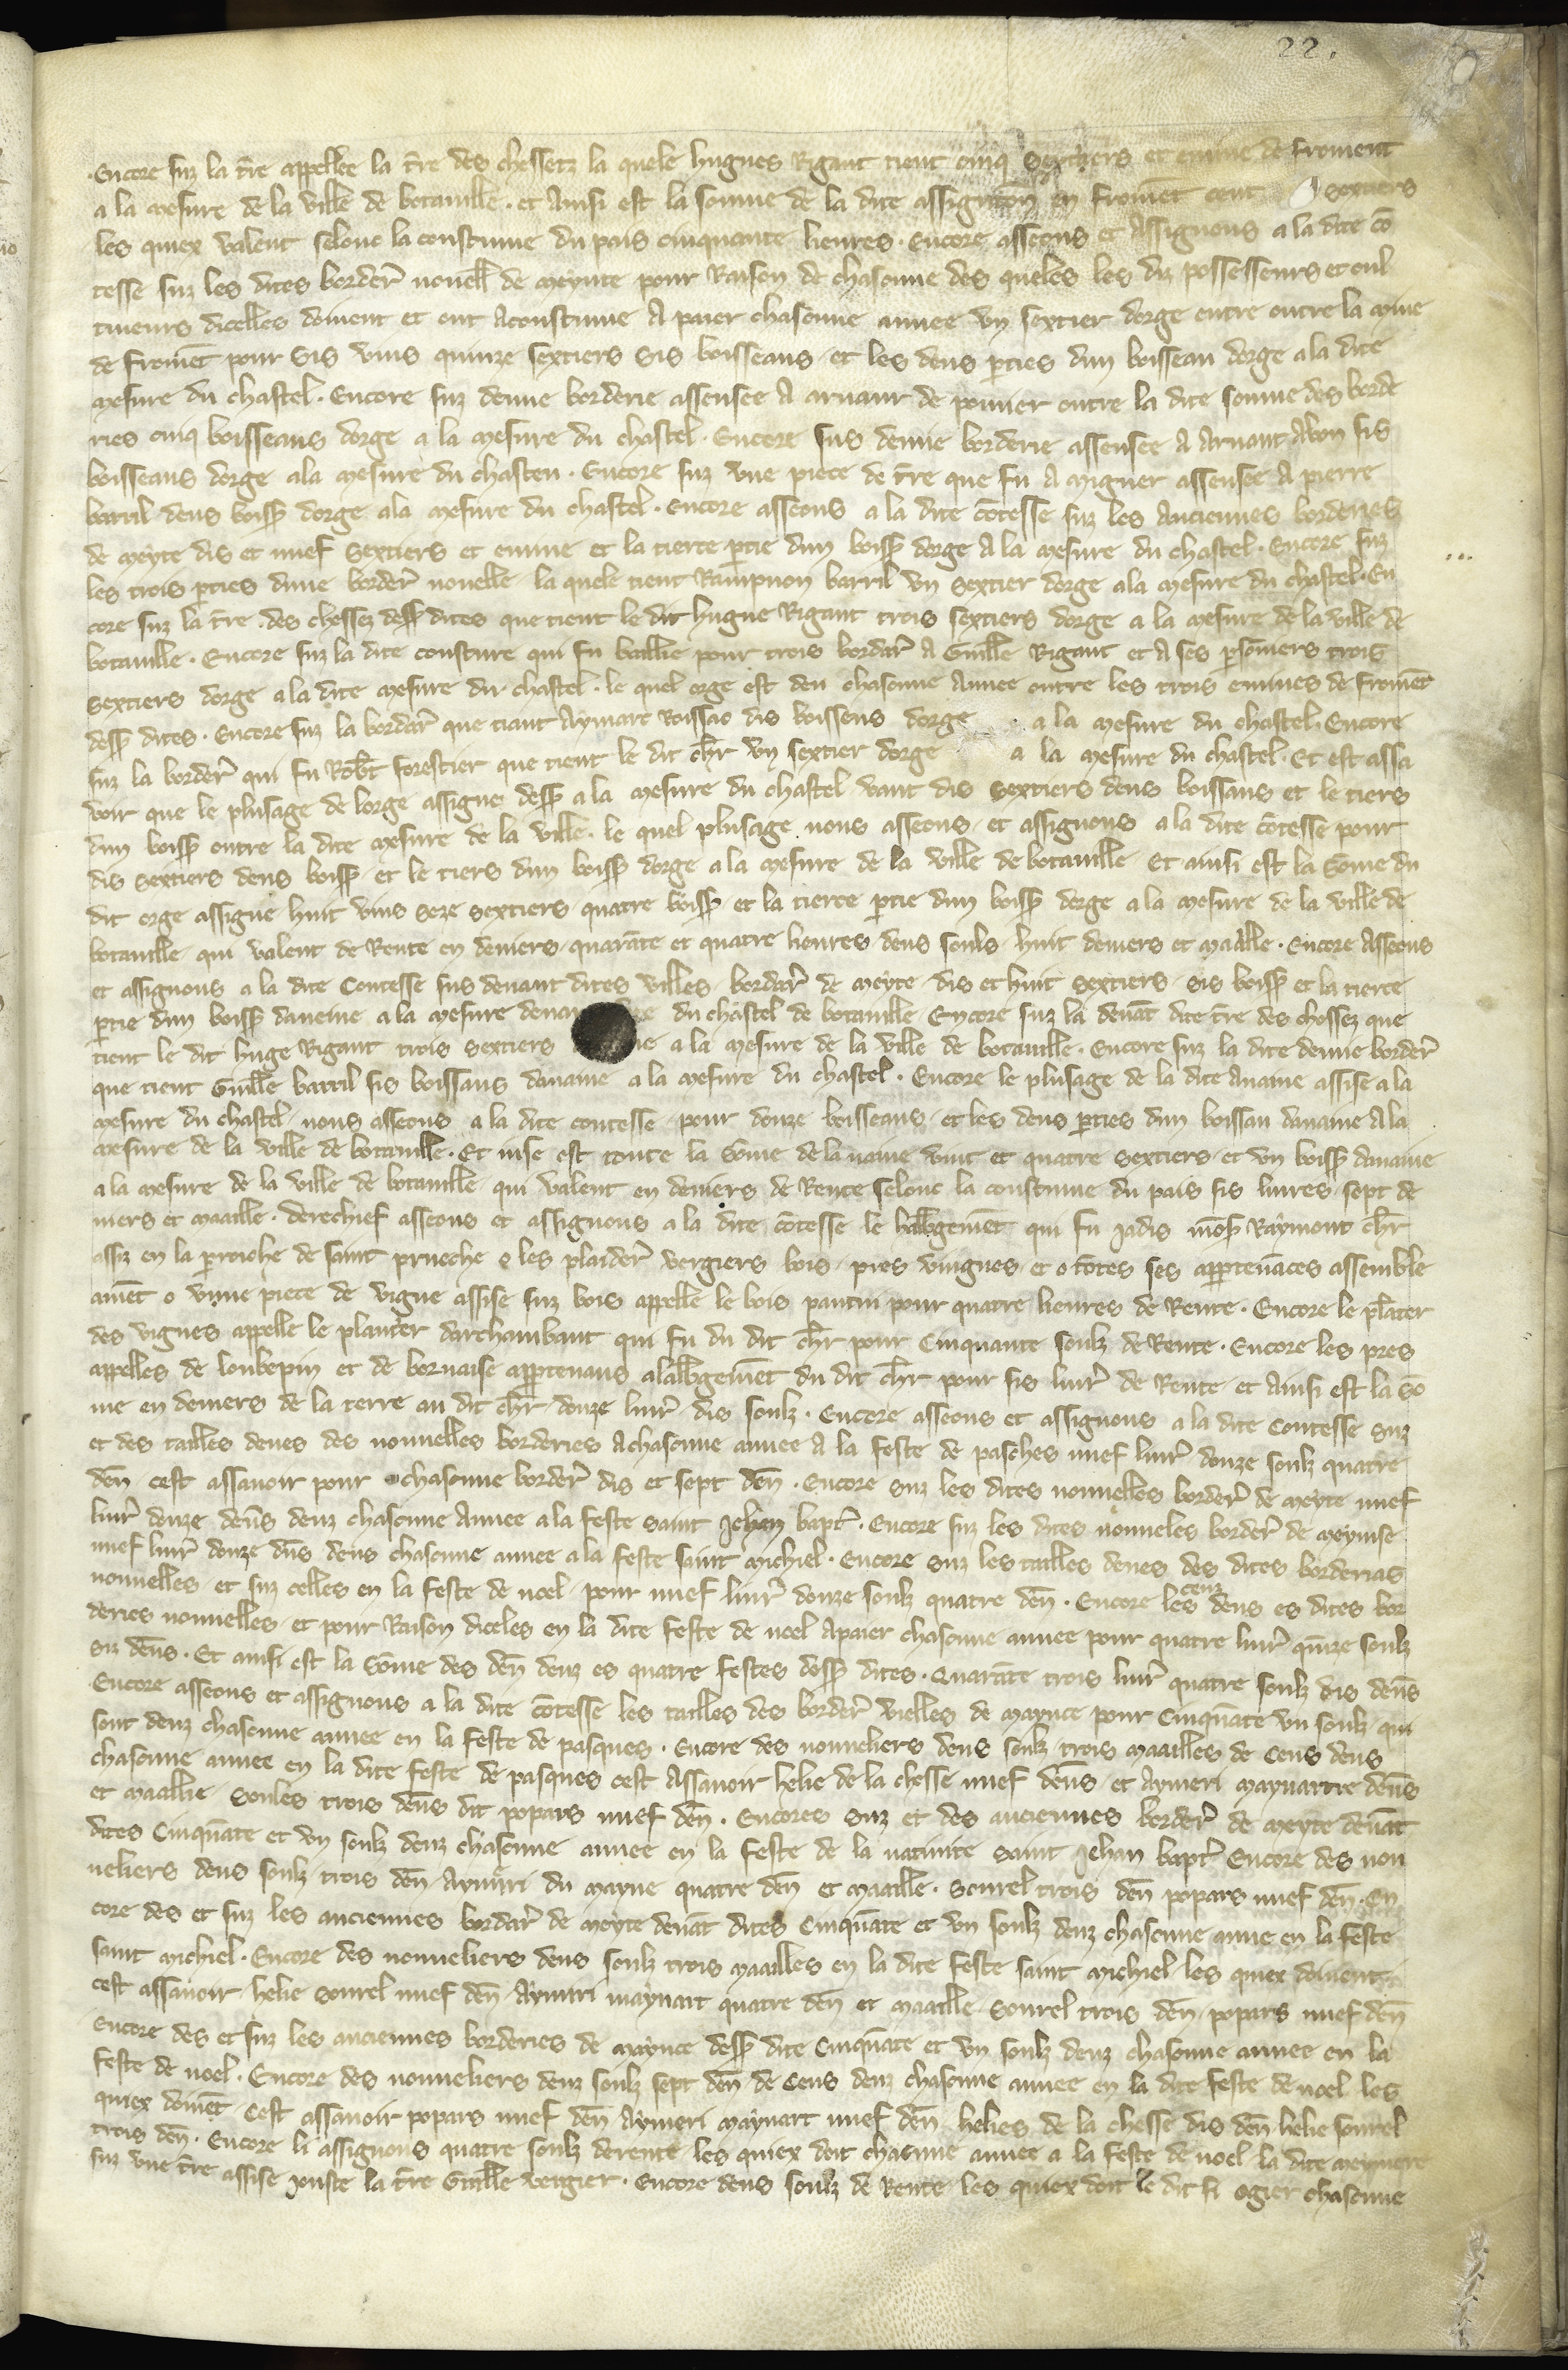 22.
Encore suz la tr̃re appellee la tr̃re des chessetz la quele hugues Rigaut tient cinq sextiers et emine de froment
a la mesure de la ville de botauille . et Ainsi est la somme de la dite assignacõn en fromẽt cent sextiers
les quiex valent selonc la coustume du pais cinquante liures . Encore asseons et Assignons a la dite cõ
tesse suz les dites border̃ nouell̃ de meynte pour Raison de chascune des queles les diz possesseurs et cul
tiueurs dicelles doiuent et ont Acoustume A paier chascune annee vn sextier dorge entre outre la mine
de fromẽt pour sis vins quinze sextiers sis boisseaus et les deus p̃ties dun boisseau dorge a la dite
mesure du chastel . Encore suz demie borderie assensee A arnaut de pomier outre la dite somme des borde
ries cinq boisseaus dorge a la mesure du chastel . Encore sus demie borderie assensee A Arnaut Abon sis
boisseaus dorge ala mesure du chasteu . Encore suz vne piece de tr̃re que fu A migner assensee A pierre
barril deus boiss̃ dorge ala mesure du chastel . encore asseons a la dite cõtesse suz les Anciennes borderies
de meyte dis et nuef sextiers et emine et la tierce p̃tie dun boiss̃ dorge A la mesure du chastel . Encore suz
les trois p̃ties dune border̃ nouelle la quele tient Rampnon barril vn sextier dorge ala mesure du chastel . En
core suz la tr̃re des chessez dess̃ dites que tient le dit hugue Rigaut trois sextiers dorge a la mesure de la ville de
botauille . Encore suz la dite cousture qui fu baillie pour trois bordar̃ A Guill̃e Rigaut et A ses p̃sõniers trois
sextiers dorge ala dite mesure du chastel . le quel orge est deu chascune Annee outre les trois emines de fromẽt
dess̃ dites . Encore suz la bordar̃ que tiant Aymart Roissac dis boisseus dorge . a la mesure du chastel . Encore
suz la border̃ qui fu Rob̃t forestier que tient le dit ch̃r vn sextier dorge a la mesure du chastel . Et est assa
voir que le plusage de lorge assigne dess̃ a la mesure du chastel vaut dis sextiers deus boissaus et le tiers
dun boiss̃ outre la dite mesure de la ville . le quel plusage nous asseons et assignons a la dite cõtesse pour
dis sextiers deus boiss̃ et le tiers dun boiss̃ dorge a la mesure de la ville de botauille Et ainsi est la sõme du
dit orge assigne huit vins seze sextiers quatre boiss̃ et la tierce p̃tie dun boiss̃ dorge a la mesure de la ville de
botauille qui valent de Rente en deniers quarãte et quatre liures deus souls huit deniers et maalle . Encore Asseons
et assignons a la dite Contesse sus deuant dites villes bordar̃ de meyte dis et huit sextiers sis boiss̃ et la tierce
p̃tie dun boiss̃ daueine a la mesure du chastel de botauille Encore suz la deuãt dite tr̃re des chossez que
tient le dit huge Rigaut trois sextiers a la mesure de la ville de botauille . Encore suz la dite demie border̃
que tient Guill̃e barril sis boissaus dauaine a la mesure du chastel . Encore le plusage de la dite Auaine assise a la
mesure du chastel nous asseons a la dite contesse pour douze boisseaus et les deus p̃ties dun boissau dauaine A la
mesure de la ville de botauille . Et inse est toute la sõme de lauaine vint et quatre sextiers et vn boiss̃ dauaine
a la mesure de la ville de botauille qui valent en deniers de Rente selonc la coustume du pais sis liures sept de
niers et maaille . derechief asseons et assignons a la dite cõtesse le halb̃gemẽt qui fu Jadis mõs̃ Raymont ch̃r
assiz en la p̃roiche de saint prueche o les plaider̃ vergiers bois pres vuignes et o totes ses app̃tenãces assemble
amẽt o vnne piece de vigne assise suz bois appelle le bois pautui pour quatre liures de Rente . Encore le plãter
des vignes appelle le planter darchambaut qui fu du dit ch̃r pour Cinquante soulz de Rente . Encore les pres
appelles de loubepin et de bornaise app̃tenans alalb̃gemẽt du dit ch̃r pour sis liur̃ de Rente et Ainsi est la sõ
me en deniers de la terre au dit ch̃r douze liur̃ dis soulz . Encore asseons et assignons a la dite Contesse suz
et des tailles deues des nouuelles borderies A chascune annee A la feste de pasches nuef liur̃ douze soulz quatre
deñ cest assauoir pour chascune border̃ dis et sept deñ . Encore suz les dites nouuelles border̃ de meyte nuef
liur̃ douze deñs deuz chascune Annee a la feste saint Jehan bapt̃ . Encore suz les dites nouueles border̃ de meynse
nuef liur̃ douze dñs deus chascune annee a la feste saint michiel . Encore suz les tailles deues des dites borderias
nouuelles et suz celles en la feste de noel pour nuef liur̃ douze soulz quatre deñ . Encore les cenz deus es dites bor
deries nouuelles et pour Raison diceles en la dite feste de noel Apaier chascune annee pour quatre liur̃ quĩze soulz
siz deñs . Et ainsi est la sõme des deñ deuz es quatre festes dess̃ dites . Quarãte trois liur̃ quatre soulz dis deñs
Encore asseons et assignons a la dite cõtesse les tailles des border̃ vielles de maynte pour Cinquãte vn soulz qui
sont deuz chascune annee en la feste de pasques . Encore des nouueliers deus soulz trois maailles de Cens deus
chascune annee en la dite feste de pasques cest Assauoir helie de la chesse nuef deñs et Aymeri maynartre deñs
et maallie soules trois deñs dit popars nuef deñ . Encores suz et des anciennes border̃ de meyte deuãt
dites Cinquãte et vn soulz deuz chascune annee en la feste de la natiuite saint Jehan bapt̃ Encore des nou
ueliers deus soulz trois deñ Aymĩri du mayne quatre deñ et maaille . sourel trois deñ popars nuef deñ . En
core des et suz les anciennes bordar̃ de meyte deuãt dites Cinquãte et vn soulz deuz chascune anne en la feste
saint michiel . Encore des nouueliers deus soulz trois maailles en la dite feste saint michiel les quiex doiuent
cest assauoir helie sourel nuef deñ Aymiri maynart quatre deñ et maaille sourel trois deñ popars nuef deñ
Encore des et suz les anciennes borderies de maynce dess̃ dite Cinquãte et vn soulz deuz chascune annee en la
feste de noel . Encore des nouueliers deuz soulz sept deñ de Cens deuz chascune annee en la dite feste de noel les
quiex doiuẽt cest assauoir popars nuef deñ Aymeri maynart nuef deñ helies de la chesse dis deñ helie sourel
trois deñ . Encore li assignons quatre soulz derente les quiex doit chacune annee a la feste de noel la dite meynere
suz vne tr̃re assise Jouste la tr̃re Guill̃e vergier . Encore deus soulz de Rente les quiex doit le dit fi ogier chascune